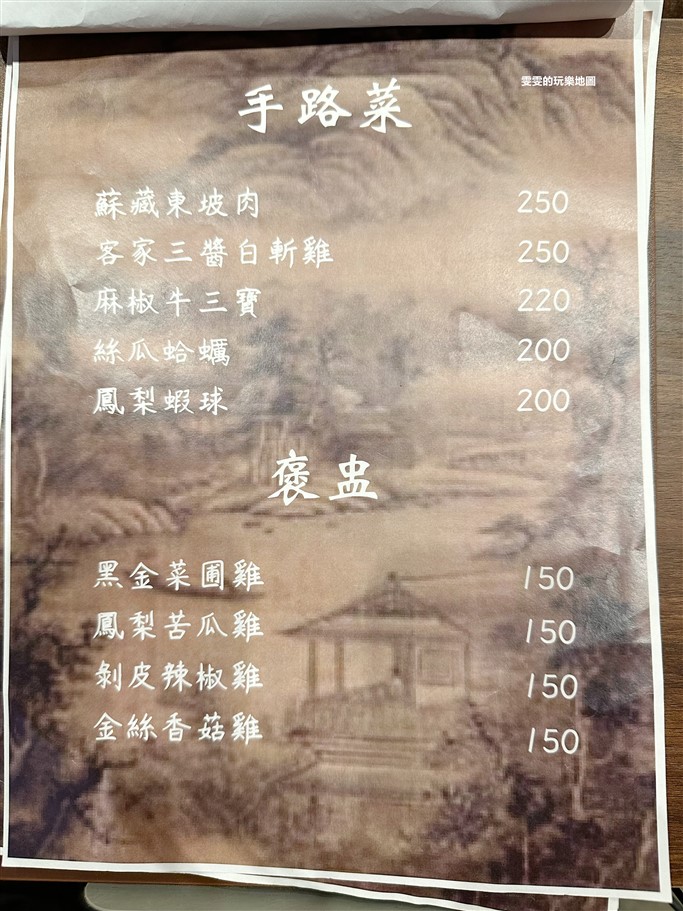 雯雯的玩樂地圖
手路菜
蘇藏東坡肉 250
客家三醬白斬雞 250
麻椒牛三寶 220
絲瓜蛤蠣 200
鳳梨蝦球 200
褒盅
黑金菜圃雞 150
鳳梨苦瓜雞 150
剝皮辣椒雞 150
金絲香菇雞 150